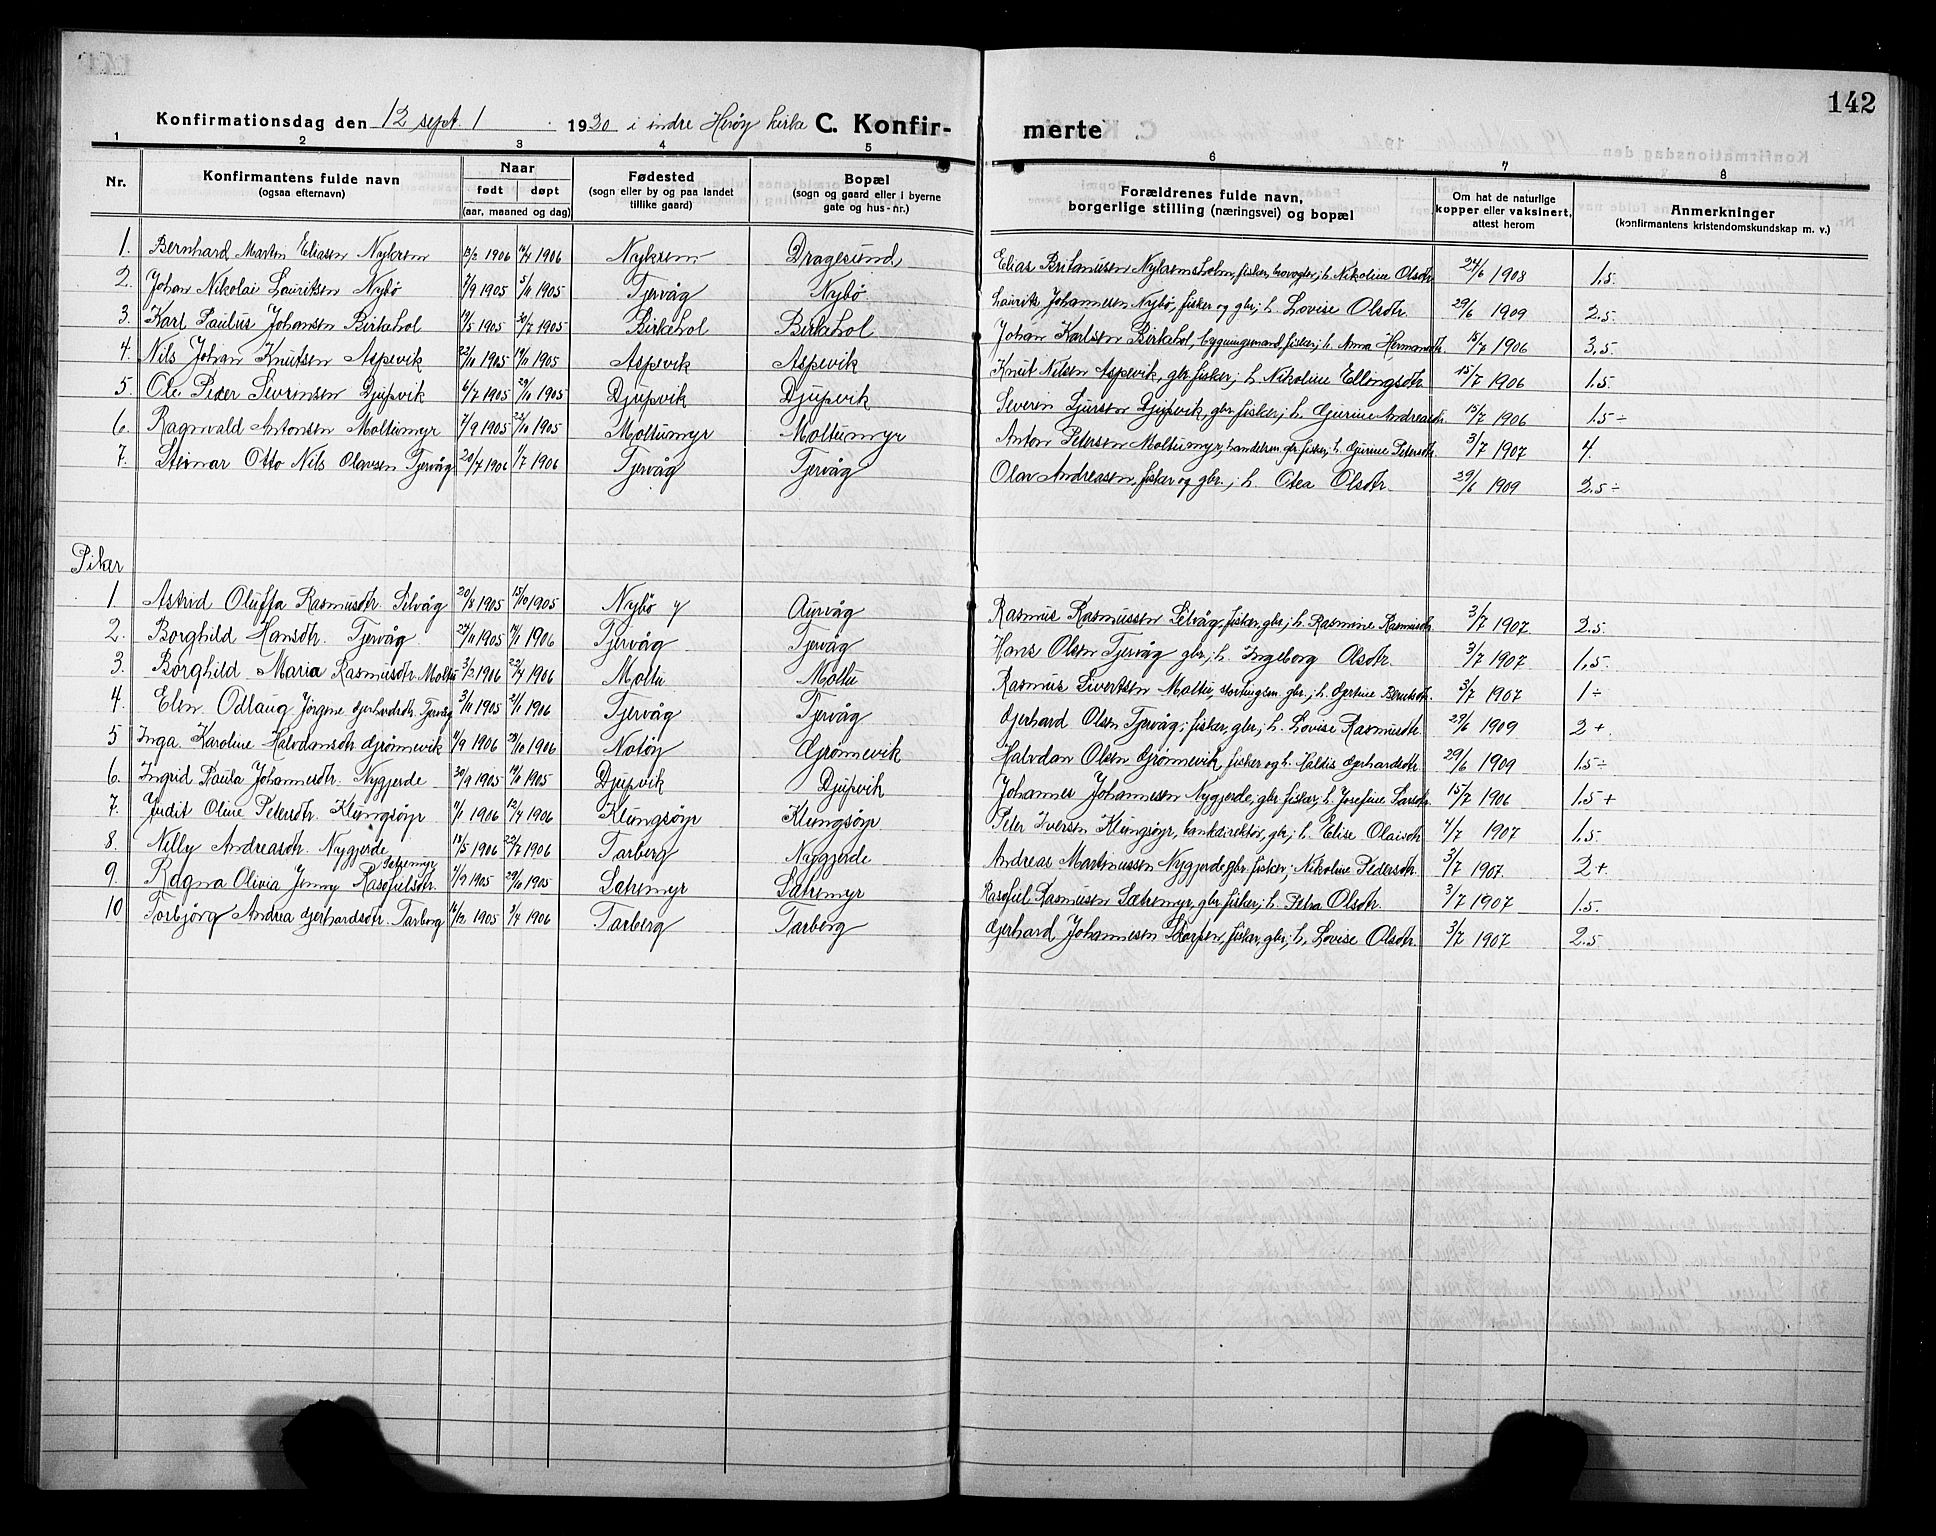 142
Konfirmationsdag den 12 sept. 1920 i indre Herøy kirke C. Konfir- merte
1 2 3 4 5 6 7 8
Nr. Konfirmantens fulde navn (ogsaa efternavn) Naar født døpt (aar, maaned og dag) Fødested (sogn eller by og paa landet tillike gaard) Bopæl (sogn og gaard eller i byerne gate og hus-nr.) Forældrenes fulde navn, borgerlige stilling (næringsvei) og bopæl Om hat de naturlige kopper eller vaksinert, attest herom Anmerkninger (konfirmantens kristendomskundskap m. v.)
1. Bernhard Martin Eliasen Nykrem 1906 1906 Nykrem Dragesund Elias fisker, h. Nikoline Olsdtr. 24/6 1908 1,5.
2. Johan Nikolai Lauritsen Nybø 7/9 1905 5/11 1905 Tjervåg Nybø Laurits Johannesen Nybø, fisker og gbr; h. Lovise Olsdtr. 29/6 1909 2.5.
3. Karl Paulus Johansen Birkehol 1905 30/7 1905 Birkehol Birkehol Johan Karlsen Birkehol, bygningsmand, fisker; h. Anna Hermansdtr. 15/7 1906 3,5.
4. Nils Johan Knutsen Aspevik 1905 19/11 1905 Aspevik Aspevik Knut Nilsen Aspevik, gbr. fisker; h. Nikoline Ellingsdtr. 15/7 1906 1.5.
5. Ole Peder Sevrensen Djupvik 6/7 1905 1905 Djupvik Djupvik Severin Sjursen Djupvik, gbr. fisker; h. Gjurine Andreasdtr. 15/7 1906 1.5 ÷
6. Ragnvald Antonsen Moltumyr 7/9 1905 22/10 1905 Moltumyr Moltumyr Anton Petersen Moltumyr, handelsm. gbr. fisker; h. Gjurine Petersdtr. 3/7 1907 4.
7. Steinar Otto Nils Olavsen Tjervåg 1906 1/7 1906 Tjervåg Tjervåg Olav Andreasen, fisker og gbr.; h. Olea Olsdtr. 29/6 1909 2.5 ÷
Piker
1. Astrid Oluffa Rasmusdtr. Selvåg 20/8 1905 15/10 1905 Nybø Aurvåg Rasmus Rasmussen Selvåg, fisker, gbr; h. Rasmine Rasmusdtr. 3/7 1907. 2.5.
2. Borghild Hansdtr. Tjervåg 1905 14/1 1906 Tjervåg Tjervåg Hans Olsen Tjervåg gbr; h. Ingeborg Olsdtr. 3/7 1907 1,5.
3. Borghild Maria Rasmusdtr. Moltu 3/2 1906 22/4 1906 Moltu Moltu Rasmus Sivertsen Moltu, stortingsm. gbr.; h. Gjertine Berntsdtr. 3/7 1907 1 ÷
4. Elen Odlaug Jörgene Gjerhardsdtr. Tjervåg 3/11 1905 21/1 1906 Tjervåg Tjervåg Gjerhard Olsen Tjervåg; fisker, gbr.; h. Lovise Rasmusdtr. 29/6 1909 2 +.
5 Inga Karoline Halvdansdtr Grönnevik 1906 28/10 1906 Notöy Grönnevik Halvdan Olsen Grönnevik, fisker og h. Valdis Gjerhardsdtr. 29/6 1909 1.5 ÷
6. Ingrid Paula Johannesdtr. Nygjerde 30/9 1905 19/11 1905 Djupvik Djupvik Johannes Johannesen Nygjerde, gbr. fisker; h. Josefine Larsdtr. 15/7 1906 1.5 +
7. Judit Oline Petersdtr. Klungsöyr 1906 12/4 1906 Klungsöyr Klungsöyr Peter Iversen Klungsöyr, bankdirektör, gbr.; h. Elise Olaisdtr. 1907 1.5.
8. Nelly Andreasdtr. Nygjerde 1906 22/7 1906 Tarberg Nygjerde Andreas Martinussen Nygjerde, gbr. fisker; Nikoline Pedersdtr. 3/7 1907. 2 +
9. Ragna Olivia Jenny Rasofielsdtr. Sætremyr 1/9 1905 29/10 1905 Sætremyr Sætremyr Rasofiel Rasmusen Sætremyr, gbr. fisker; h. Petra Olsdtr. 3/7 1907 1.5.
10 Torbjörg Andrea Gjerhardsdtr. Tarberg 1905 1906 Tarberg Tarberg Gjerhard Johannesen fisker, gbr.; h. Lovise Olsdtr. 3/7 1907 2.5